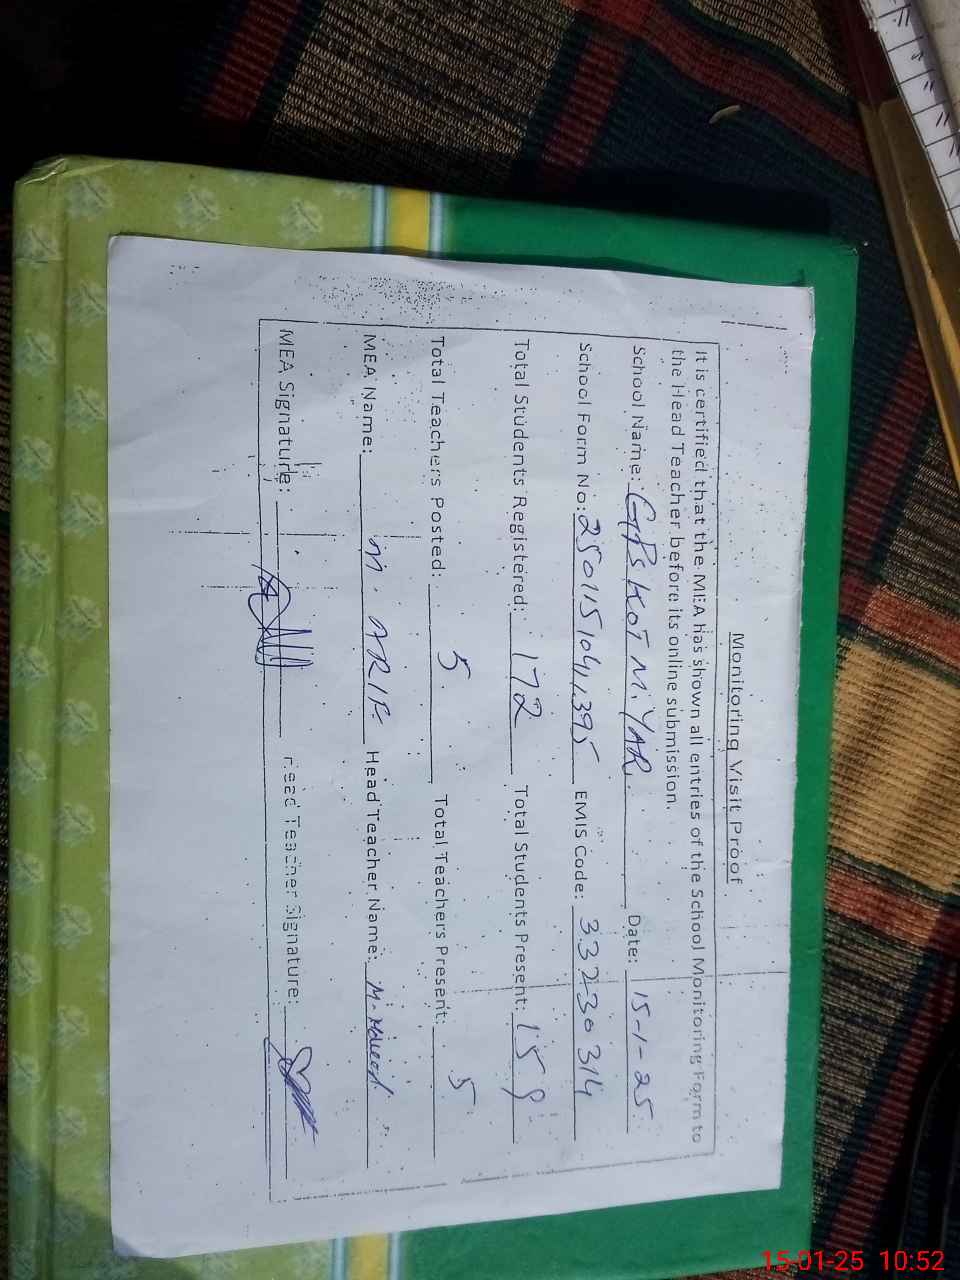 Monitoring Visit Proof
It is certified that the MEA has shown all entries of the School Monitoring Form to
the Head Teacher before its online submission.
School Name: GPS KOT M. YAR. Date: 15-1-25
School Form No: 2501151041395 EMIS Code: 33230314
Total Students Registered: 172 Total Students Present: 159
Total Teachers Posted: 5 Total Teachers Present: 5
MEA Name: M. ARIF Head Teacher Name: M.
MEA Signature: Head Teacher Signature:
15-01-25 10:52